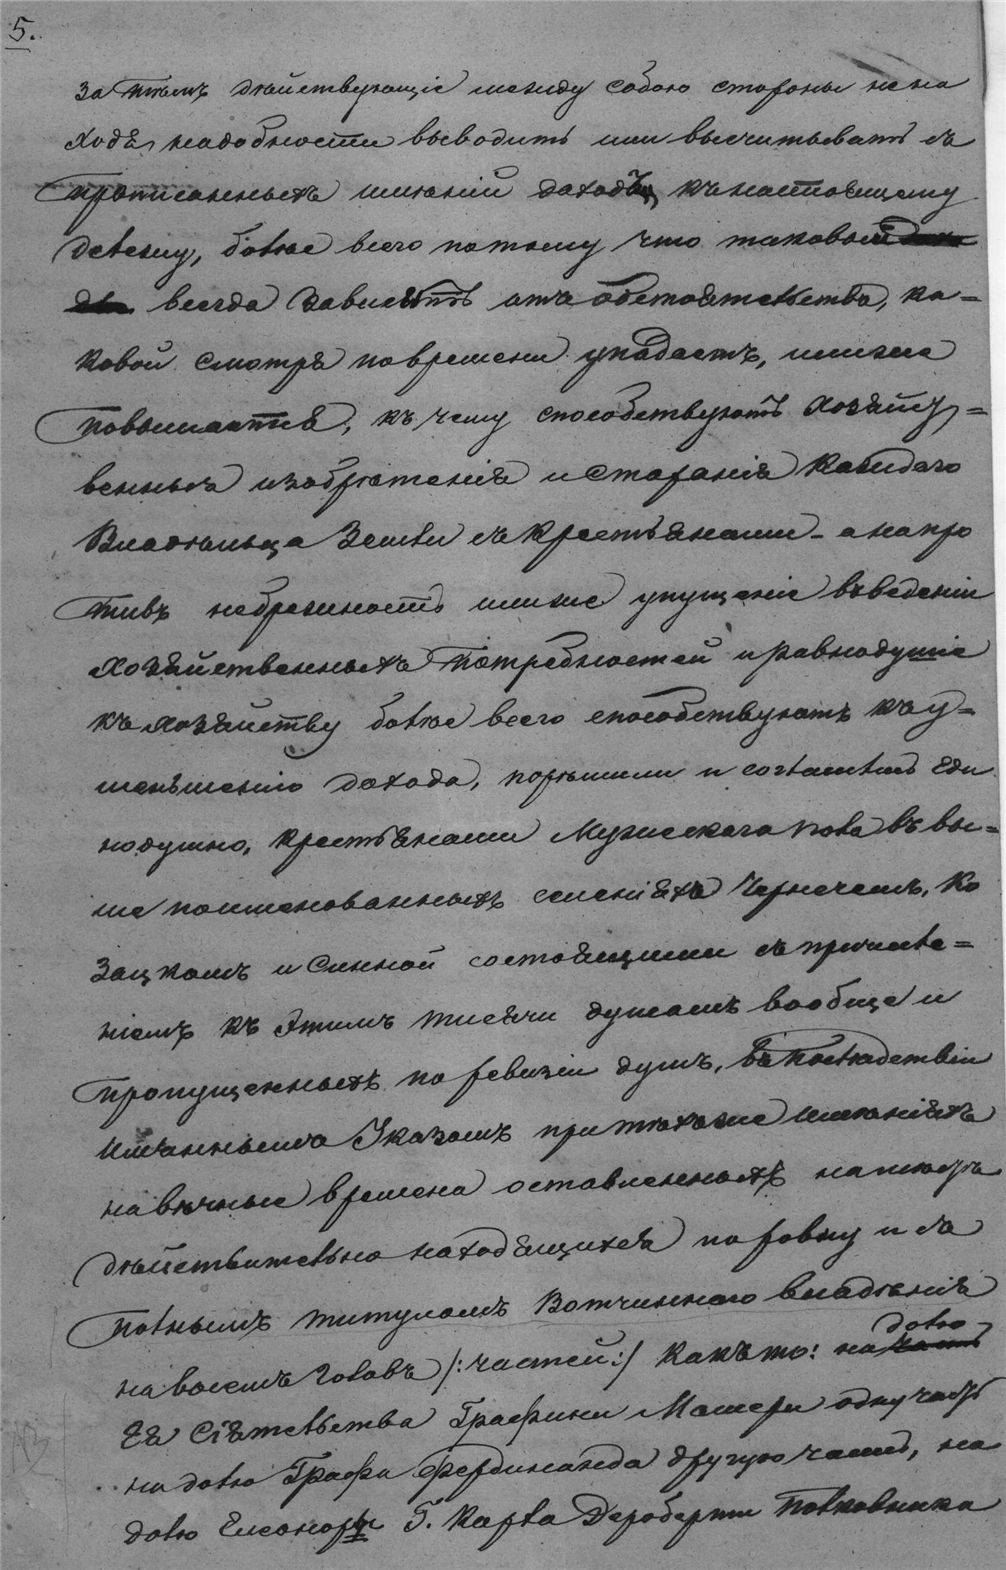 5.
затѣмъ дѣйствующіе между собою стороны нена
ходя надобности выводить или высчитывать съ
прописанныхъ имѣній доходъ, къ настоящему
дѣлежу, болѣе всего потому что таковый
всегда зависѣтъ отъ обстоятельствъ, ка=
ковой смотря повремени упадаетъ, илиже
повышается, къ чему способствуютъ хозяйст=
венныя изобрѣтенія и старанія каждаго
Владѣльца Земли съ крестьянами - а напро
тивъ небрежность илиже упущеніе въведеніи
хозяйственныхъ потребностей и равнодушіе
къ хозяйству болѣе всего способствуютъ къ у=
меньшенію дохода, порѣшили и согласились еди
нодушно, крестьянами Мужескаго пола въ вы=
ше поименованныхъ селеніяхъ Чернечемъ, Ко
зацкомъ и Синной состоящими съ причисле=
ніемъ къ этимъ тысячи душамъ вообще и
пропущенныхъ по ревизіи душъ, въ послѣдствіи
имяннымъ Указомъ при тѣхже имѣніяхъ
на вѣчные времена оставленныхъ налицо
дѣйствительно находящихся по ровну и съ
полнымъ титуломъ Вотчиннаго владѣнія
на восемъ головъ /:частей:/ какъ то: на долю
Ея Сіятельства Графини Матери одну часть
на долю Графа Фердинанда другую часть, на
долю Елеоноры Г. Карла Дероберти Полковника